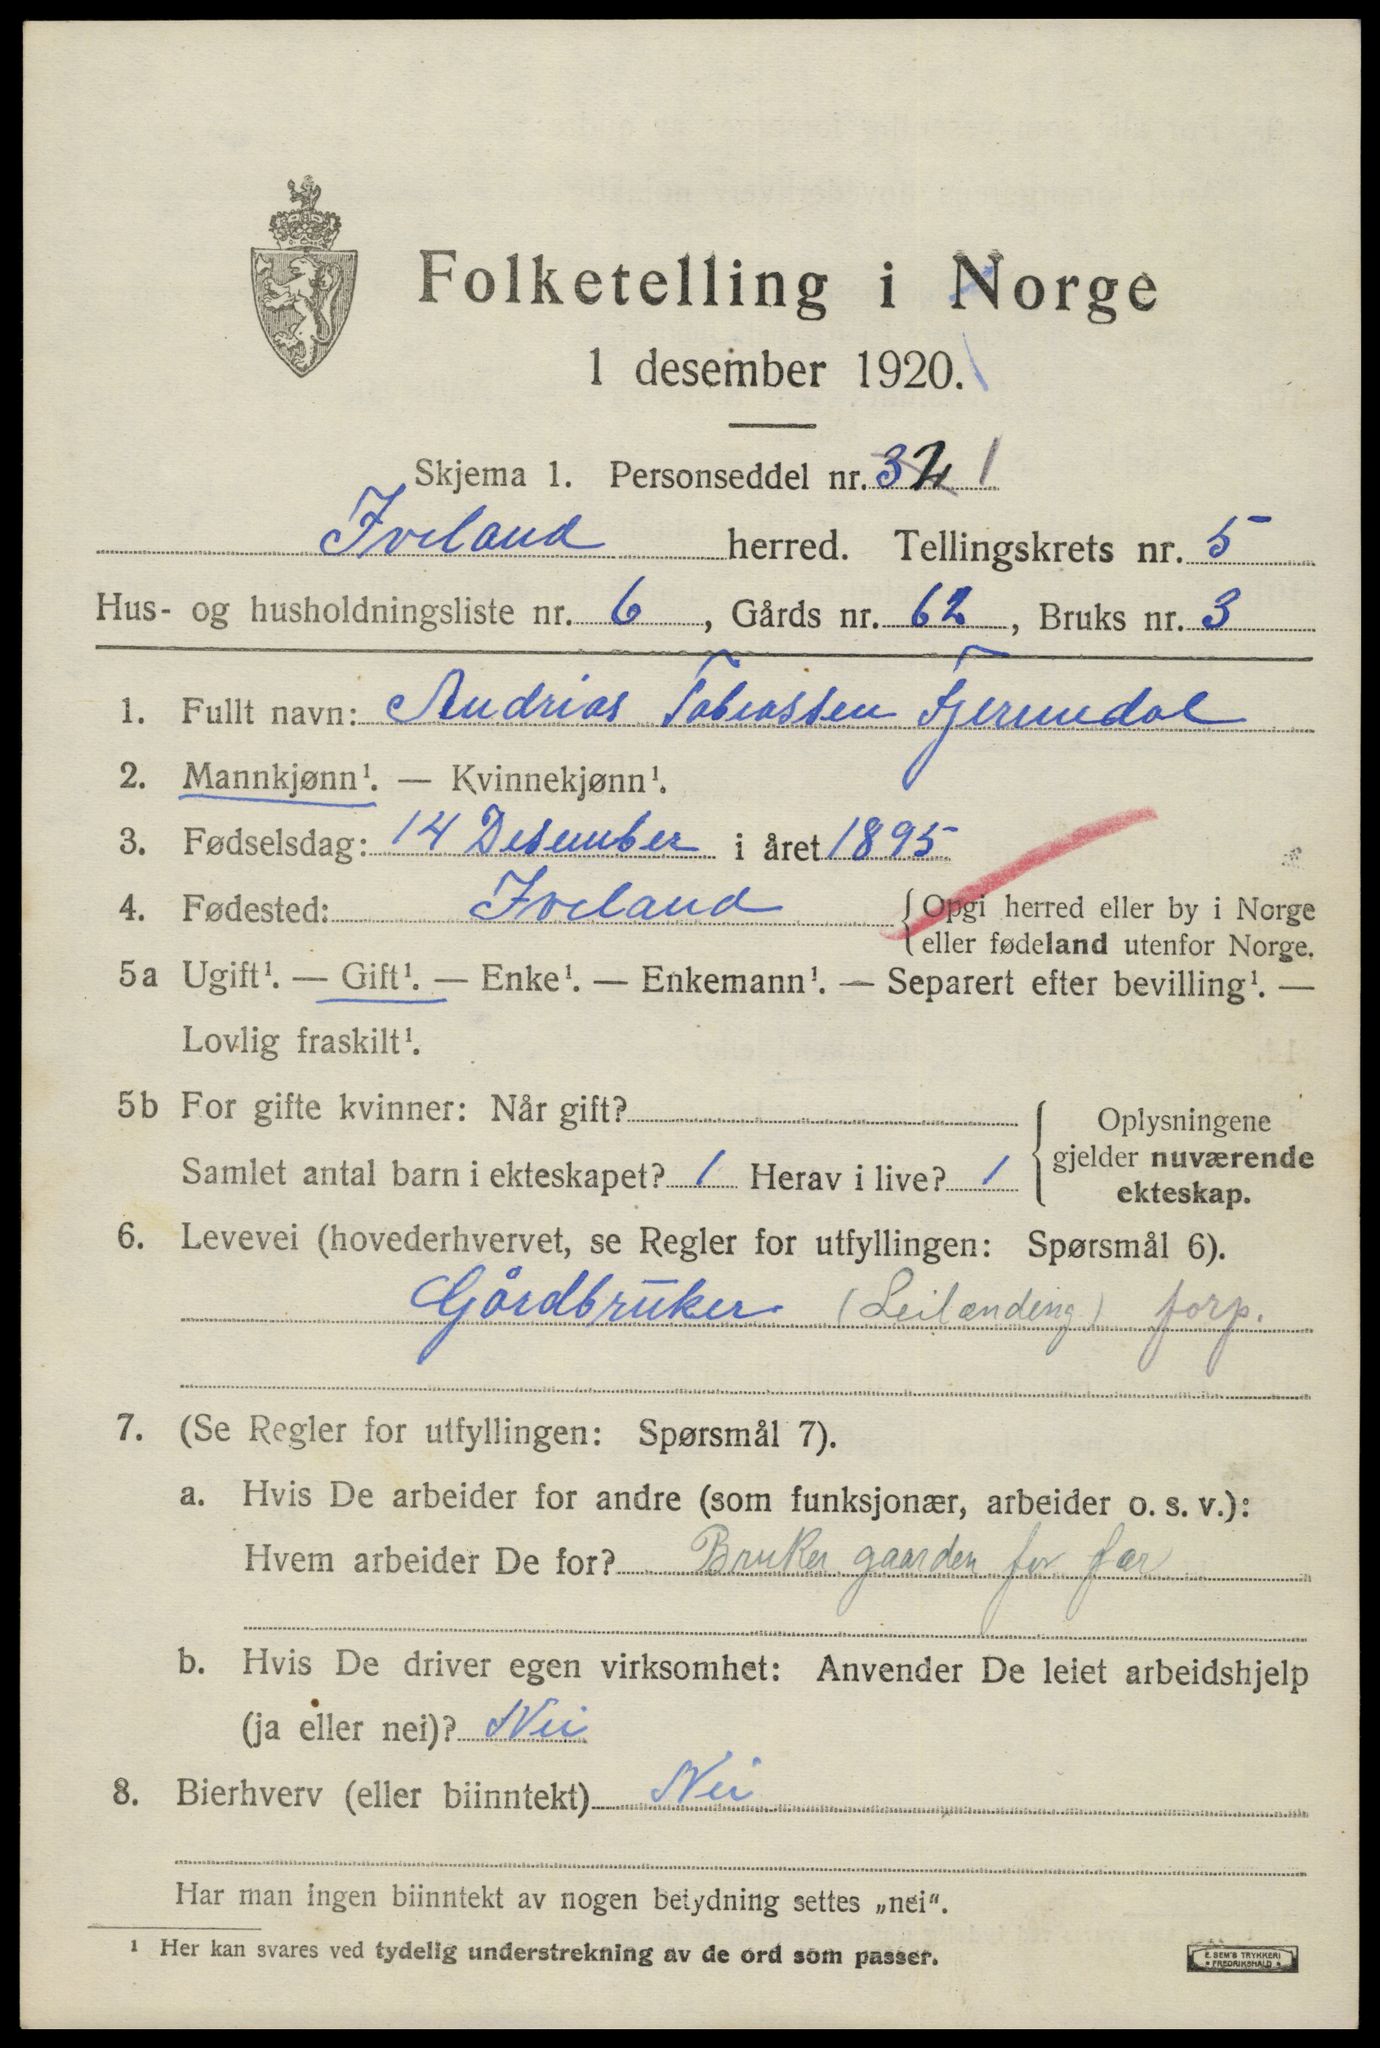 Folketelling i Norge
1 desember 1920.
Skjema 1. Personseddel nr. 32 1
Iveland herred. Tellingskrets nr. 5
Hus- og husholdningsliste nr. 6, Gårds nr. 62, Bruks nr. 3
1. Fullt navn: Andrias Tobiassen Fjermedal
2. Mannkjønn¹. — Kvinnekjønn¹.
3. Fødselsdag: 14 Desember i året 1895
4. Fødested: Iveland {Opgi herred eller by i Norge
eller fødeland utenfor Norge.
5a Ugift¹. — Gift¹. — Enke¹. — Enkemann¹. — Separert efter bevilling¹. —
Lovlig fraskilt¹.
5b For gifte kvinner: Når gift?
Samlet antal barn i ekteskapet? 1 Herav i live? 1
{Oplysningene
gjelder nuværende
ekteskap.
6. Levevei (hovederhvervet, se Regler for utfyllingen: Spørsmål 6).
Gårdbruker (Leilænding) forp.
7. (Se Regler for utfyllingen: Spørsmål 7).
a. Hvis De arbeider for andre (som funksjonær, arbeider o. s. v.):
Hvem arbeider De for? Bruker gaarden for far
b. Hvis De driver egen virksomhet: Anvender De leiet arbeidshjelp
(ja eller nei)? Nei
8. Bierhverv (eller biinntekt) Nei
Har man ingen biinntekt av nogen betydning settes „nei“.
¹ Her kan svares ved tydelig understrekning av de ord som passer.
E. SEM'S TRYKKERI
FREDRIKSHALD